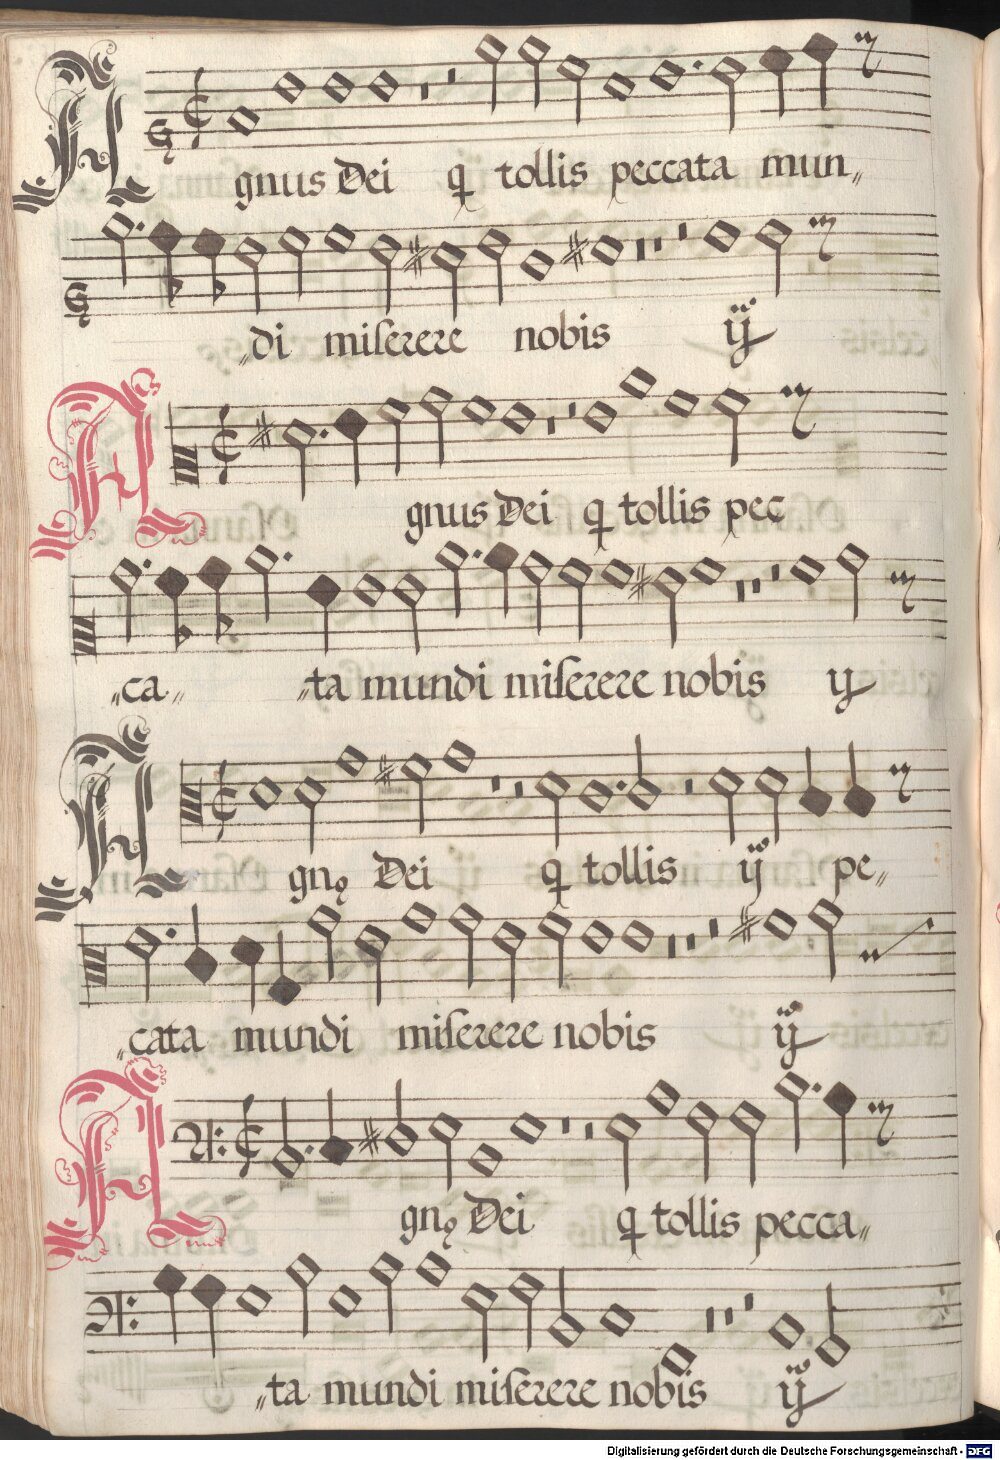 Agnus Dei q tollis peccata mun„
„di miserere nobis ij
Agnus Dei q tollis pec
„ca„ „ta mundi miserere nobis ij
Agnꝯ Dei q tollis ij pe„
„cata mundi miserere nobis ij
Agnꝯ Dei q tollis pecca„
„ta mundi miserere nobis ij
Digitalisierung gefördert durch die Deutsche Forschungsgemeinschaft - DFG